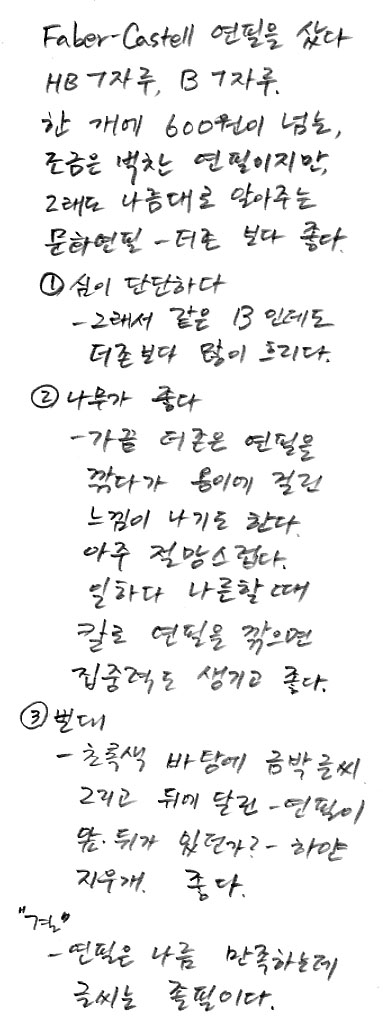 Faber-Castell 연필을 샀다
HB 7자루, B 7자루.
한 개에 600원이 넘는,
조금은 벅찬 연필이지만,
그래도 나름대로 알아주는
문화연필 - 더존 보다 좋다.
① 심이 단단하다
- 그래서 같은 B 인데도
더존보다 많이 흐리다.
② 나무가 좋다
- 가끔 더존은 연필을
깎다가 옹이에 걸린
느낌이 나기도 한다.
아주 절망스럽다.
일하다 나른할 때
칼로 연필을 깎으면
집중력도 생기고 좋다.
③ 뽄대
- 초록색 바탕에 금박 글씨
그리고 뒤에 달린 - 연필이
앞·뒤가 있던가? - 하얀
지우개. 좋다.
"결"
- 연필은 나름 만족하는데
글씨는 졸필이다.